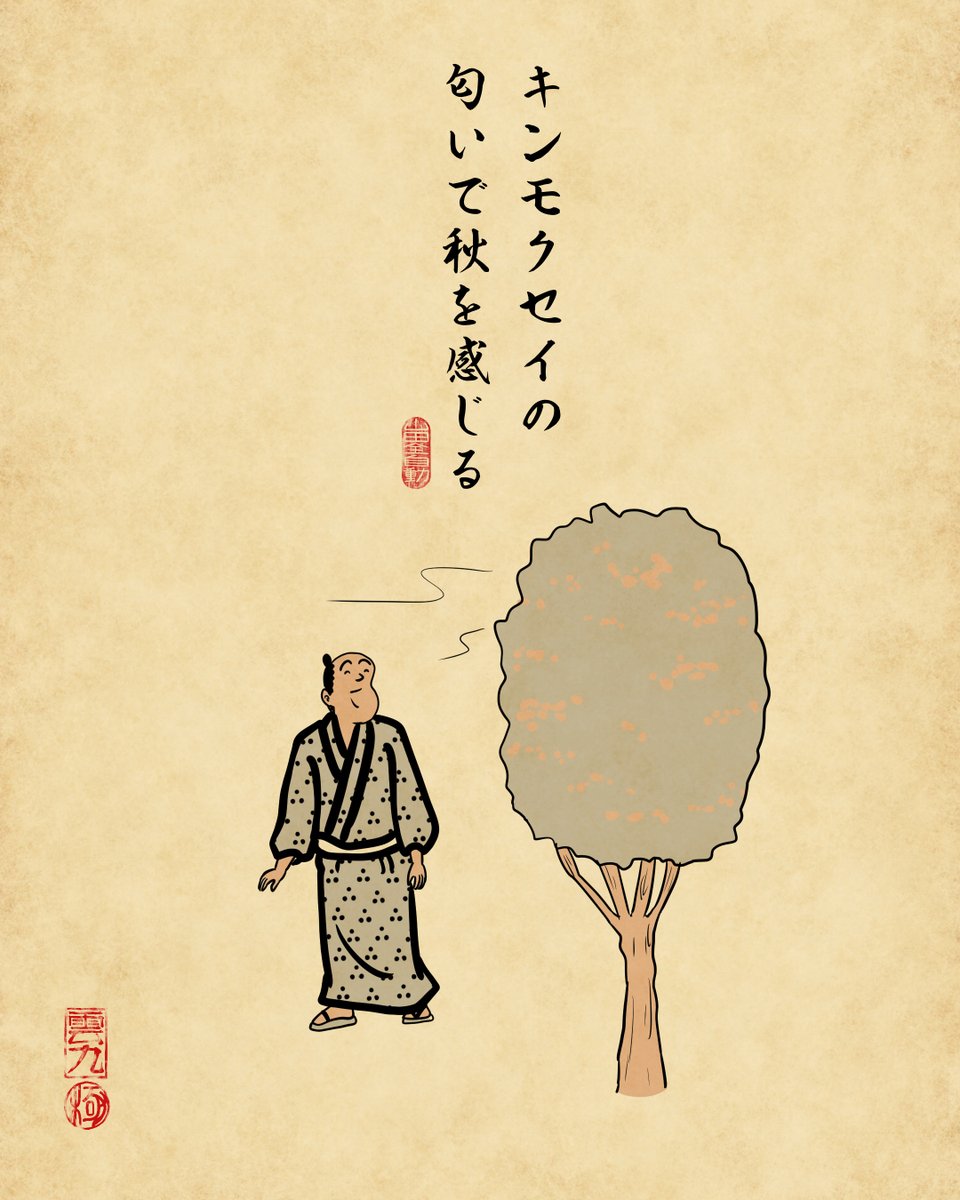 キンモクセイの
匂いで秋を感じる